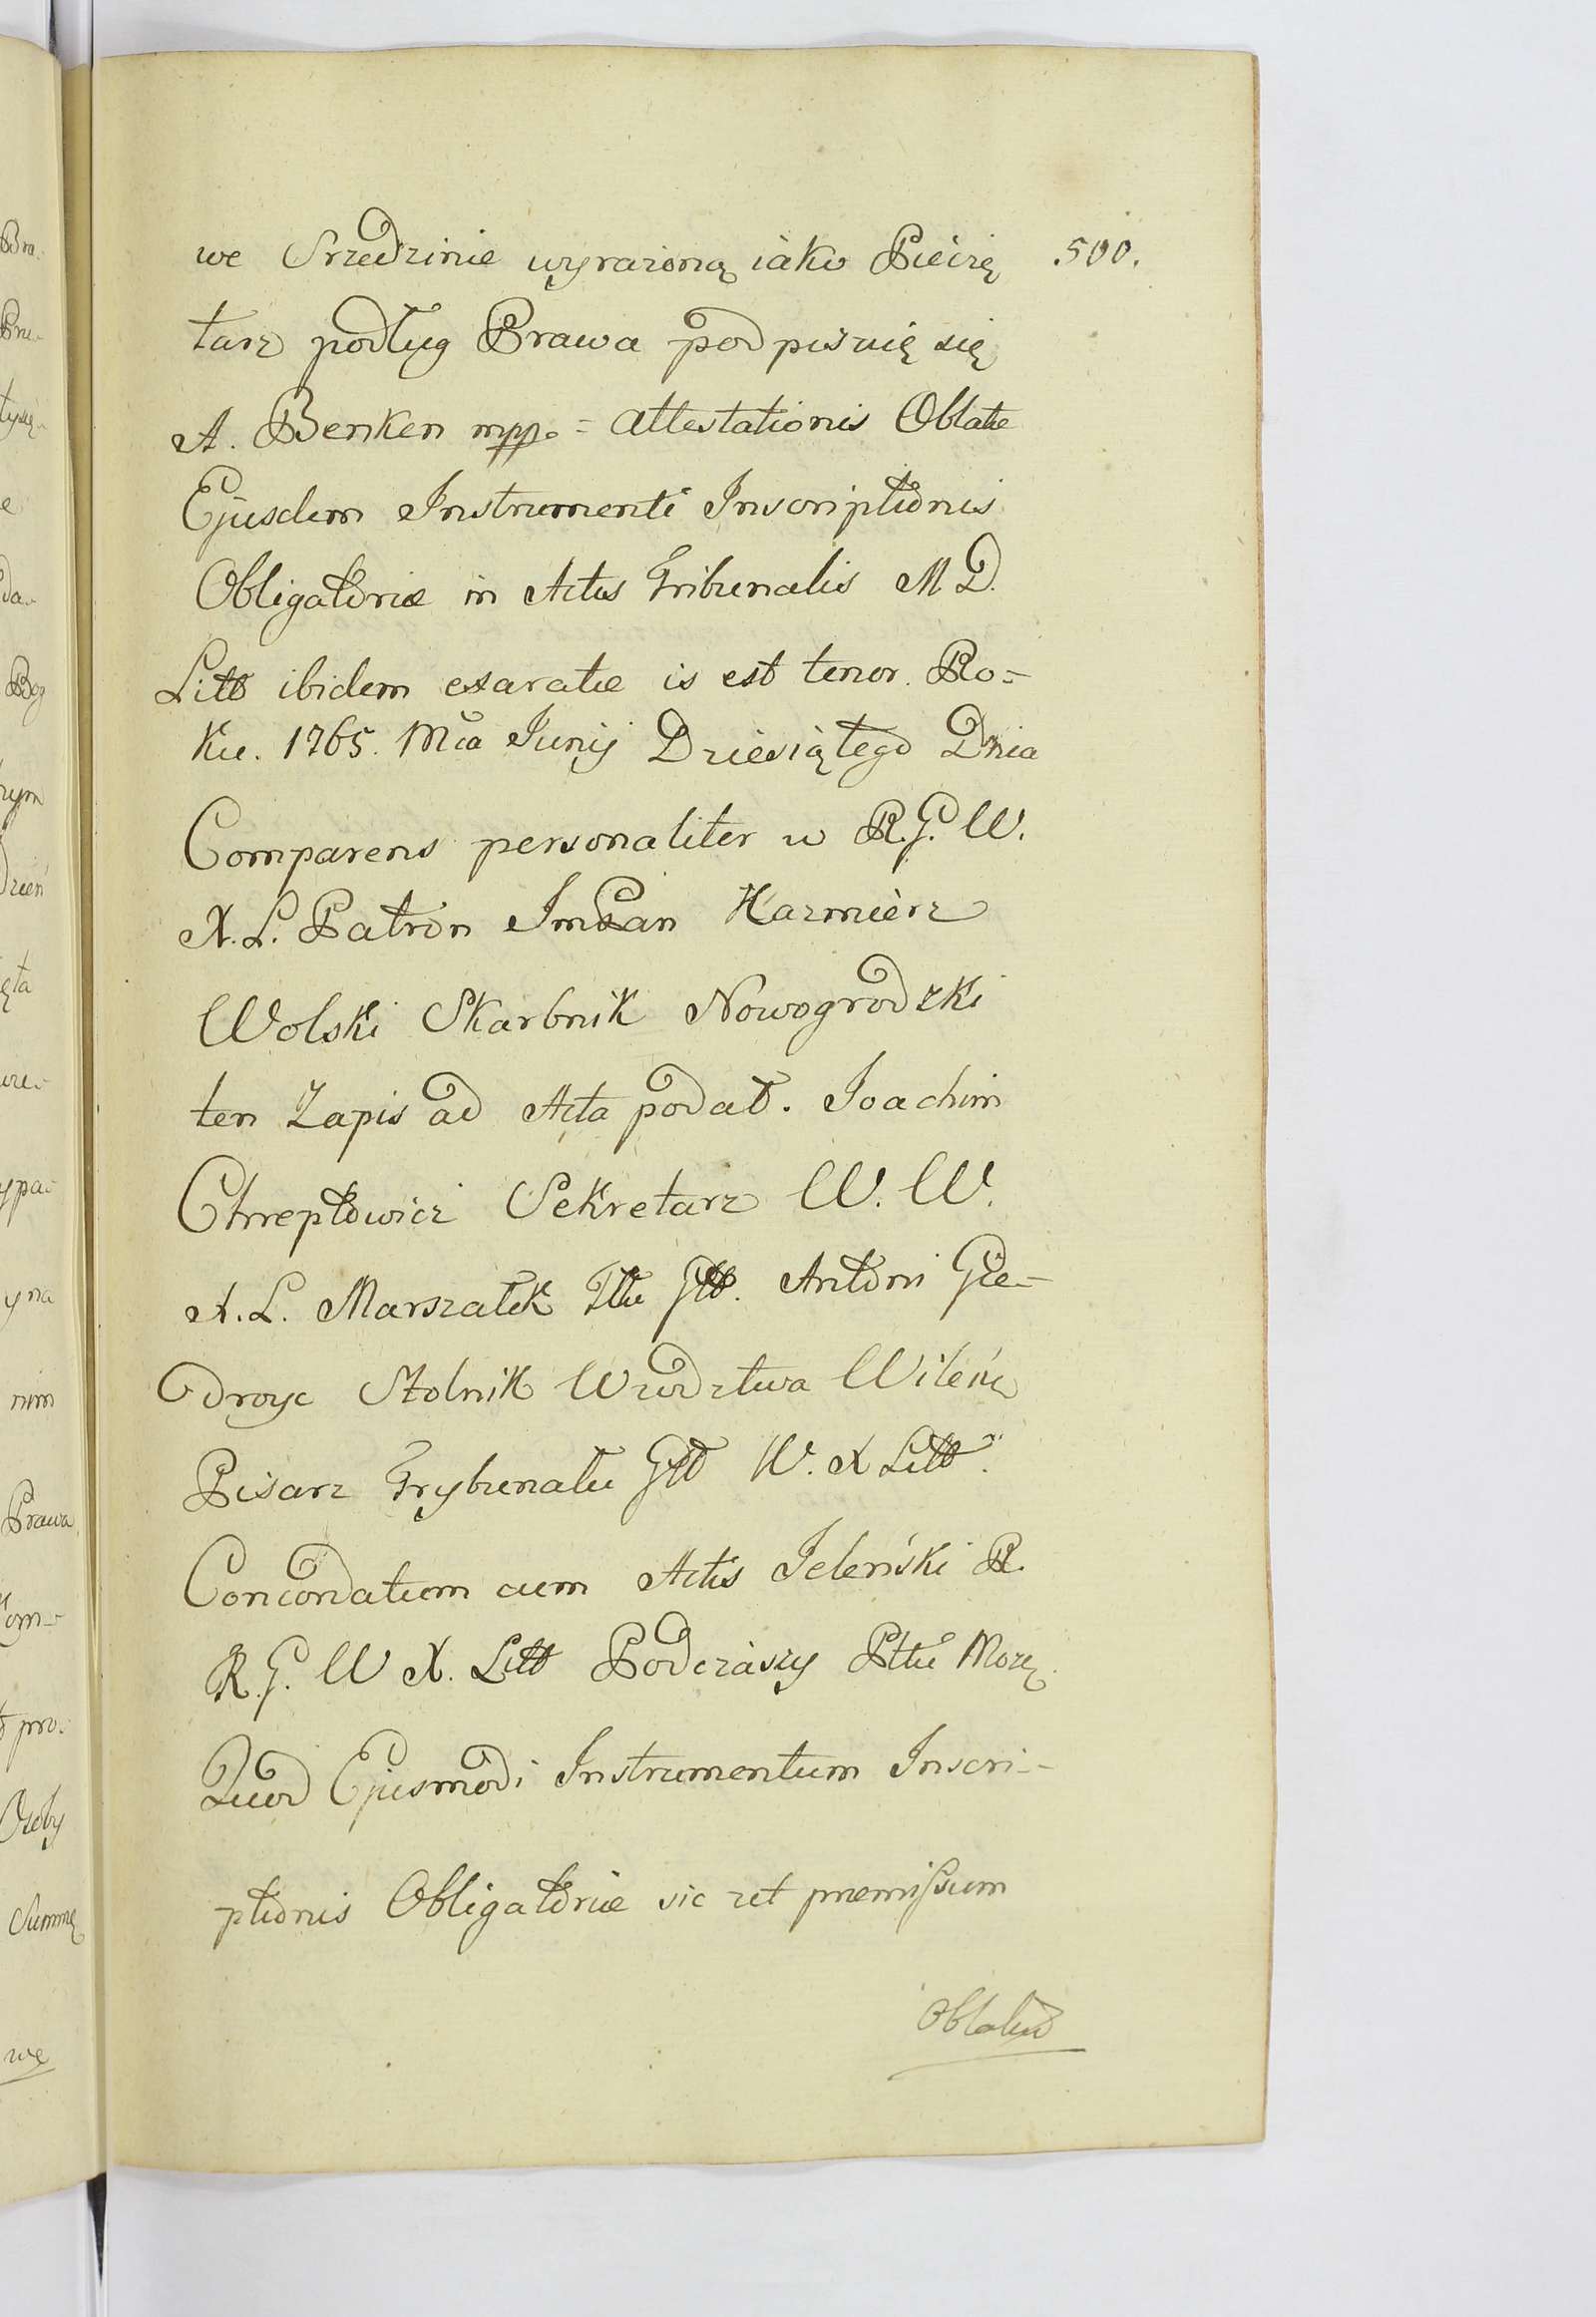 500.
we Srzedzinie wyrażoną iako Pieczę
tarz podług Prawa podpisuię się
A. Benken mpp. = Attestationis Oblatæ
Ejusdem Instrumenti Inscriptionis
Obligatoriæ in Actis Tribunalis M D.
Litt ibidem exaratæ is est tenor. Ro=
ku. 1765. Mca Junij Dziesiątego Dnia
Comparens personaliter u R. G. W.
X. L. Patron ImPan Kazmierz
Wolski Skarbnik Nowogrodzki
ten Zapis ad Acta podał. Joachim
Chreptowicz Sekretarz W. W.
X. L. Marszałek Tłu Głł. Antoni Gie-
droyc Stolnik Wwodztwa Wileń
Pisarz Trybunału Głł W. X Litt.
Concordatum cum Actis Jeleński R.
R. G. W X. Litt Podczaszy Pttu Mozę
Quod Ejusmodi Instrumentum Inscri-
ptionis Obligatoriæ sic ut præmissum